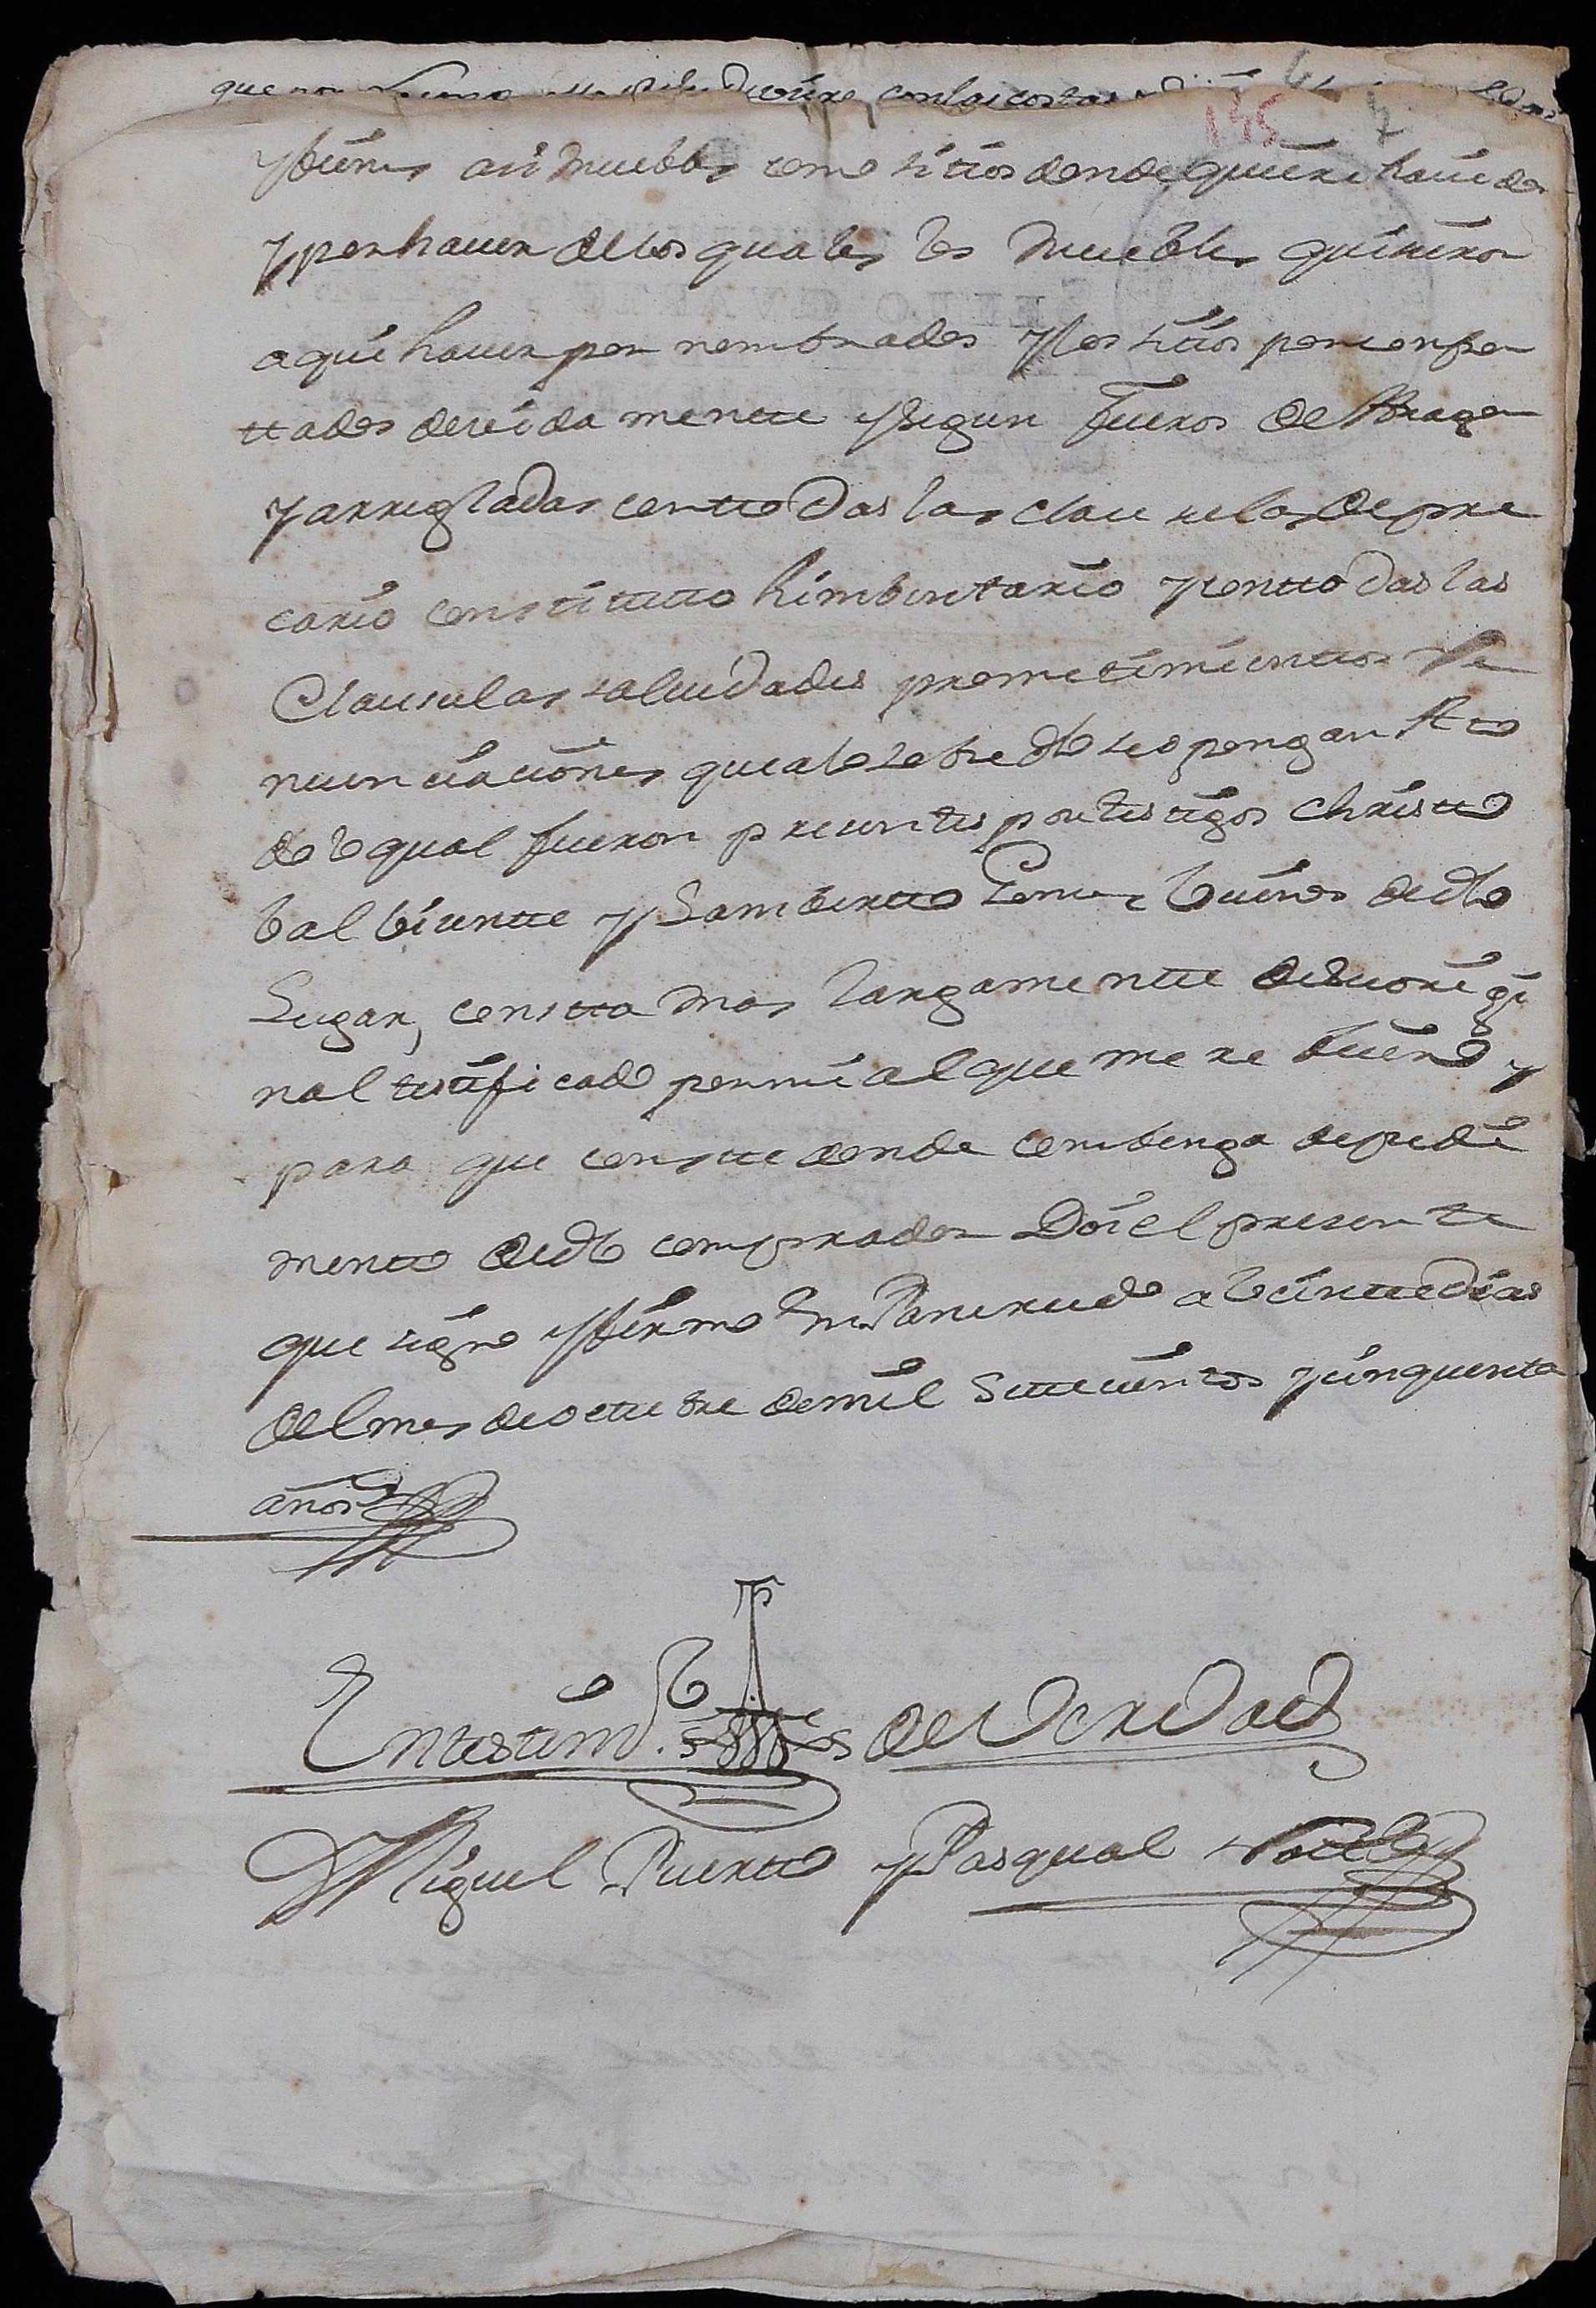 con las costas
145 7
y bienes asi Muebles como sitios donde quiere hauidos
y por hauer de los quales los Muebles quisieron
aqui hauer por nombrados y los sitios por confron
ttados deuidamentte y segun fueros de Aragon
y arregladas con ttodas las clausulas de pre
cario constitutto himbentario y con ttodas las
Clausulas saluedades promettimienttos Re
nunciaciones que a lo sobre dho se opongan A tto
do lo qual fueron presentes por testigos Christto
bal Vicentte y Lambertto vecinos de dho
Lugar, constta mas largamentte de su origi
nal testificado por mi al que me refiero y
para que constte donde combenga de pedi
mentto de dho comprador Doi el presente
que signo y firmo en Pancrudo a veintte Dias
del mes de octtubre de mil settecientos y cinquenta
años
En testimo. de Verdad
Miguel Puertto y Pasqual Notto